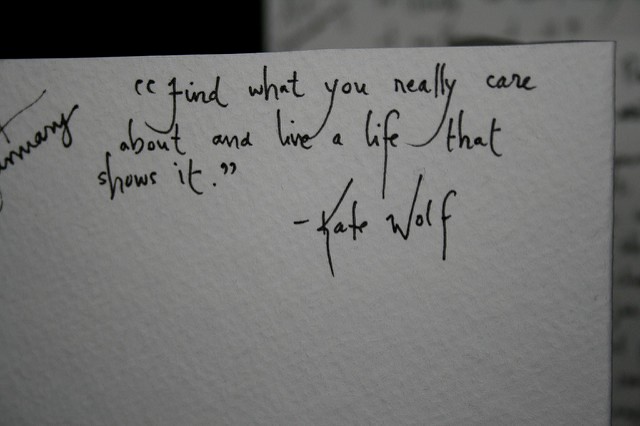 “find what you really care
about and live a life that
shows it.”
-Kate Wolf